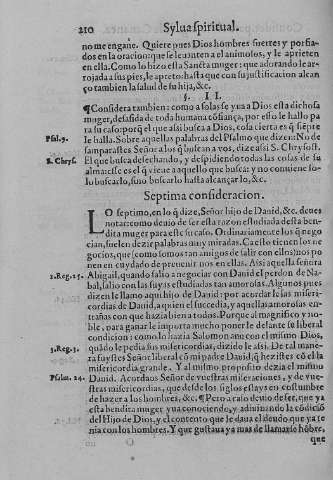 210 Sylua spiritual.
no me engañe. Quiere pues Dios hombres fuertes y porfia-
dos en la oracion: que se leuanten a el animosos, y le aprieten
en ella. Como lo hizo ella Sancta muger: que adorando le ar-
rojada a sus pies, le apreto: hasta que con su justificacion alcan
ço tambien la salud de su hija, &c.
§. II.
¶ Considera tambien: como a solas se yua a Dios esta dichosa
muger, desasida de toda humana cõfiança, por esso le hallo pa
ra su caso: porq̃ el que assi busca a Dios, cosa cierta es q̃ siẽpre
Psal. 9. le halla. Sobre aquellas palabras del Psalmo que dizen: No de
samparastes Señor a los q̃ buscan a vos, dize assi S. Chrysost.
S. Chrys. El que busca desechando, y despidiendo todas las cosas de su
alma: esse es el q̃ viene a aquello que busca: y no conuiene so-
lo buscarlo, sino buscarlo hasta alcançarlo, &c.
Septima consideracion.
LO septimo, en lo q̃ dize, Señor hijo de Dauid, &c. deues
notar: como deuio de ser esta razon estudiada desta ben-
dita muger para este su caso. Ordinariamente los q̃ nego
cian, suelen dezir palabras muy miradas. Ca esto tienen los ne
gocios, que (como somos tan amigos de salir con ellos) nos po
nen en cuydado de preuenir nos en ellas. Assi aquella señora
1. Reg. 25. Abigail, quando salio a negociar con Dauid el perdon de Na-
bal, salio con las suyas estudiadas tan amorosas. Algunos pues
dizen le llamo aqui hijo de Dauid: por acordar le las miseri-
cordias de Dauid, a quien el sucedia, y aquellas amorosas en-
trañas con que hazia bien a todos. Porque al magnifico y no-
ble, para ganar le importa mucho poner le delante su liberal
condicion: como lo hazia Salomon aun con el mismo Dios,
3. Reg. 3. quãdo le pedia sus misericordias, diziẽdo le assi. De tal mane-
ra fuystes Señor liberal cõ mi padre Dauid, q̃ hezistes cõ el la
misericordia grande. Y al mismo proposito dezia el mismo
Psalm. 24. Dauid. Acordaos Señor de vuestras miseraciones, y de vue-
stras misericordias, que desde los siglos estays en costumbre
de hazer a los hombres, &c. ¶ Pero a caso deuio de ser, que ya
esta bendita muger yua conociendo, y adiuinando la cõdiciõ
del Hijo de Dios, y el contento que le daua el deudo que ya te
nia con los hombres. Y que gustaua ya mas de llamarse hõbre,
que